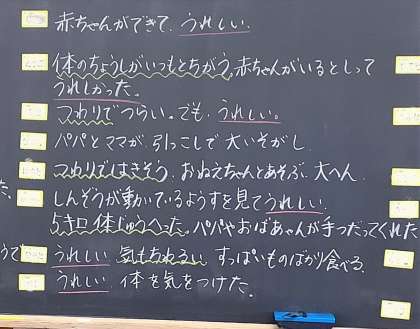 赤ちゃんができて、うれしい。
体のちょうしがいつもとちがう。赤ちゃんがいるとしって
うれしかった。
つわりでつらい。でも、うれしい。
パパとママが、引っこしで大いそがし。
つわりではきそう。おねえちゃんとあそぶ、大へん
しんぞうが動いているようすを見てうれしい。
5キロ体じゅうへった。パパやおばあちゃんが手つだってくれた
うれしい 気もちわるい すっぱいものばかり食べる。
うれしい 体を気をつけた。